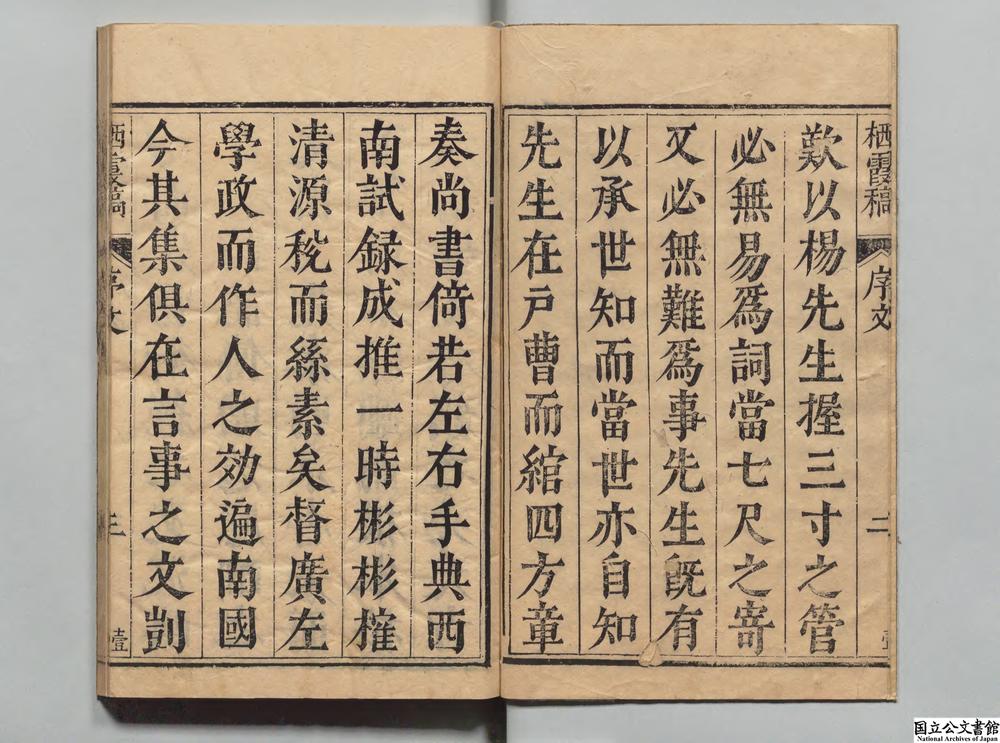 栖霞稿 序文 二 壹
歎以楊先生握三寸之管
必無易爲詞當七尺之寄
又必無難爲事先生旣有
以承世知而當世亦自知
先生在戸曹而綰四方章
奏尚書倚若左右手典西
南試録成推一時彬彬榷
清源稅而絲素矣督廣左
學政而作人之効遍南國
今其集俱在言事之文剴
栖霞稿 序文 三 壹
国立公文書館
National Archives of Japan